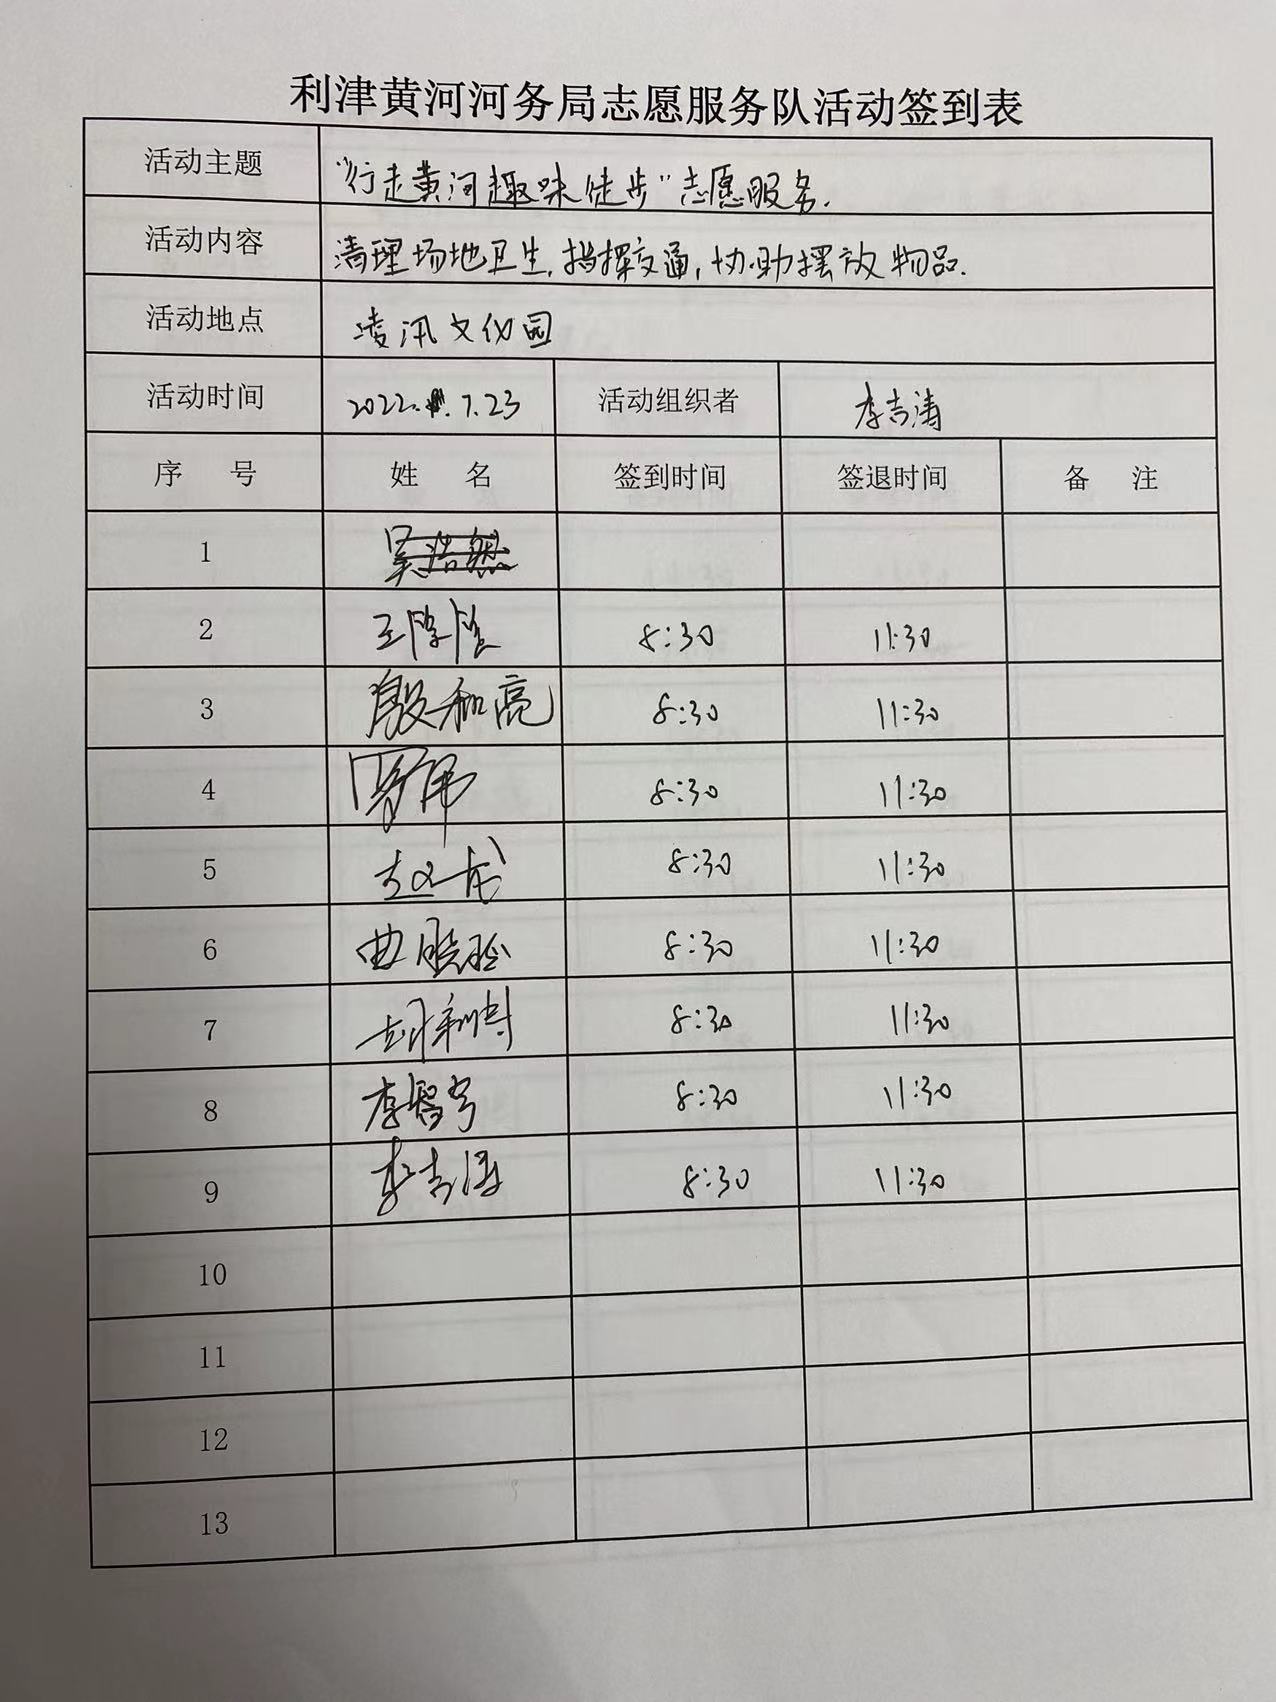 利津黄河河务局志愿服务队活动签到表
活动主题 "行走黄河趣味徒步"志愿服务.
活动内容 清理场地卫生,指挥交通,协助摆放物品.
活动地点 凌汛文化园
活动时间 2022. 7.23 活动组织者 李吉涛
序 号 姓 名 签到时间 签退时间 备 注
1 吴浩然
2 8:30 11:30
3 殷和亮 8:30 11:30
4 罗伟 8:30 11:30
5 赵龙 8:30 11:30
6 曲 8:30 11:30
7 胡利 8:30 11:30
8 李 8:30 11:30
9 李吉涛 8:30 11:30
10
11
12
13